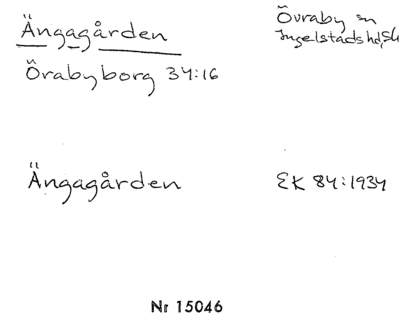 Ängagården
Övraby sn
Ingelstads hd, Sk
Örabyborg 34:16
Ängagården
EK 84:1934
Nr 15046